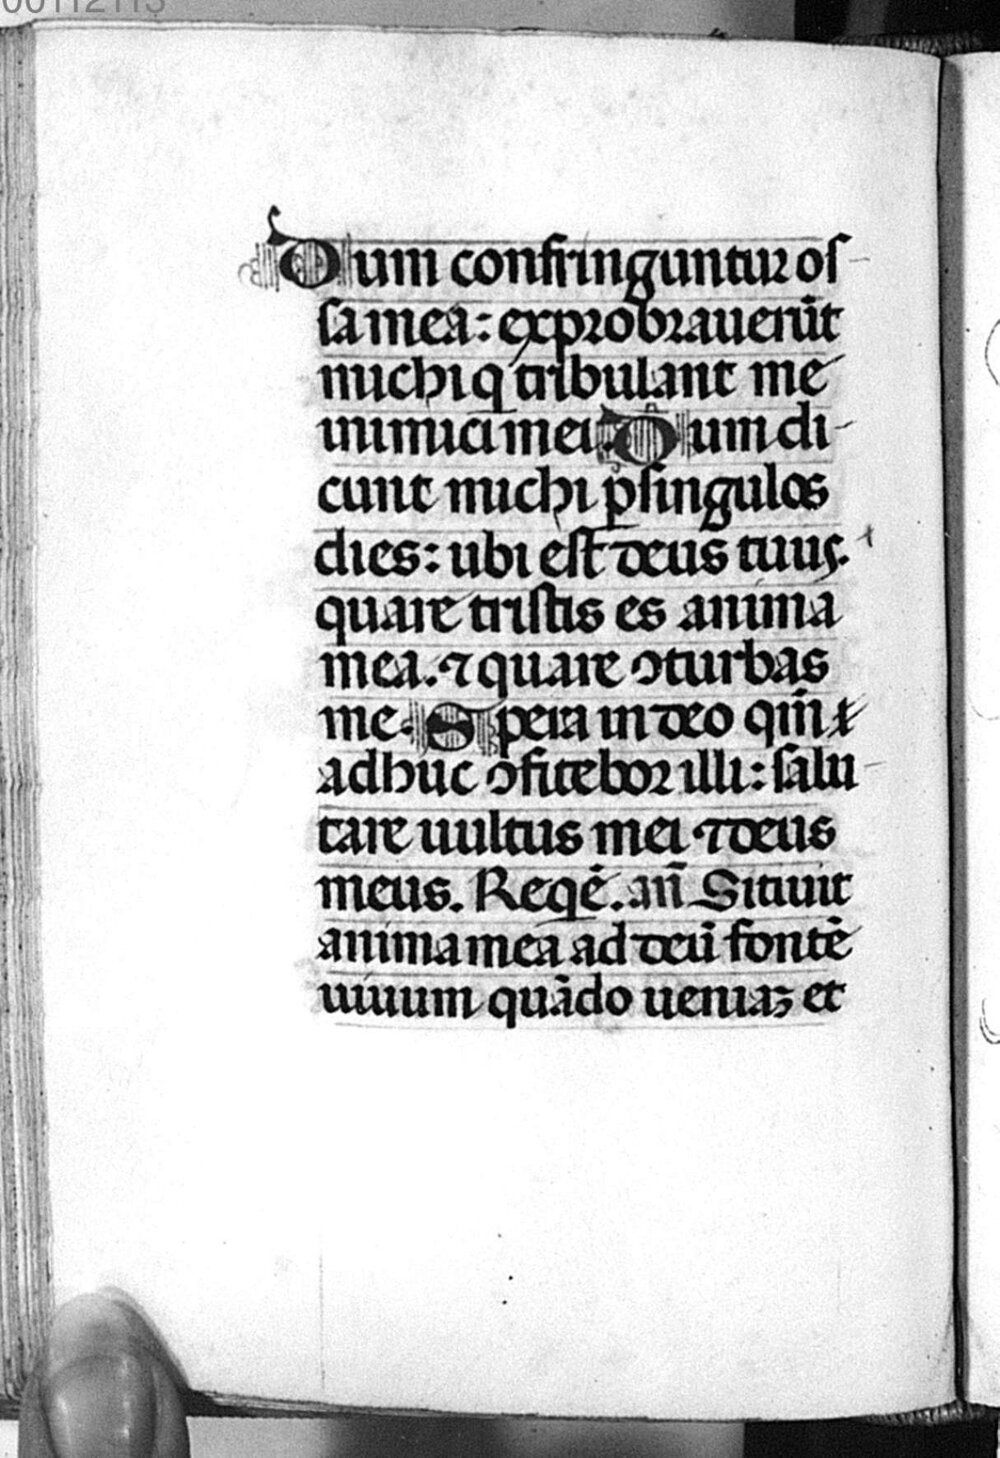 00112113
Dum confringuntur os-
sa mea: exprobrauerūt
michi q̄ tribulant me
inimici mei. Dum di-
cunt michi ꝑ singulos
dies: ubi est deus tuus.
quare tristis es anima
mea. ⁊ quare ꝯturbas
me. Spera in deo qm̄
adhuc ꝯfitebor illi: salu-
tare uultus mei ⁊ deus
meus. Reqē. an̄ Sitiuit
anima mea ad deū fontē
uiuum quādo ueniaꝫ et